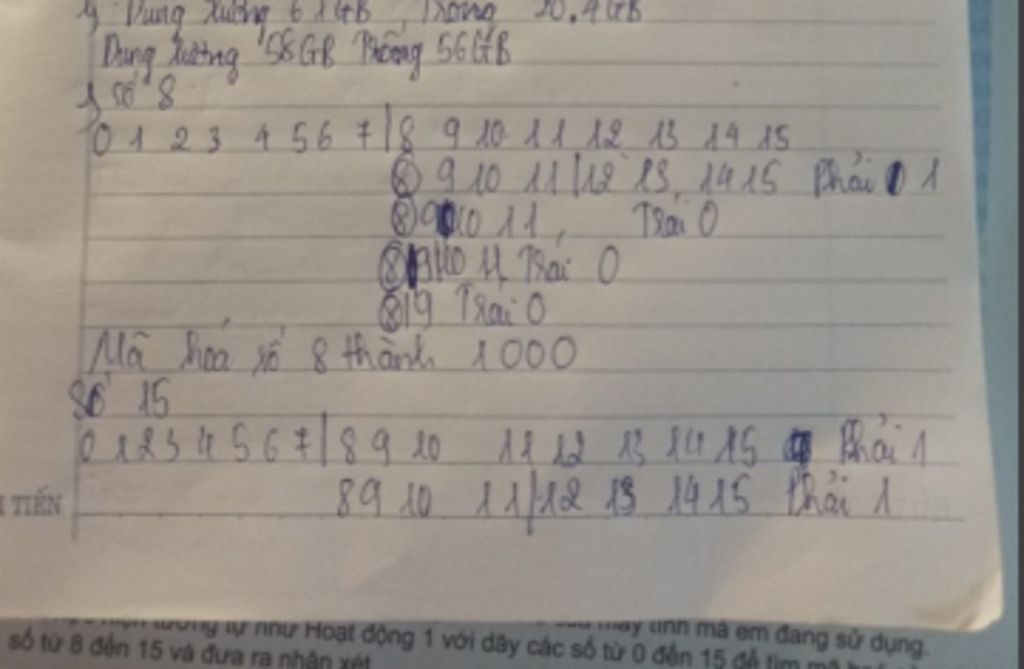 Dung lượng 61GB, Trống 20.4GB
Dung lượng 58GB Trống 56GB
Số 8
0 1 2 3 4 5 6 7 | 8 9 10 11 12 13 14 15
8 9 10 11 | 12 13, 14 15 Phải 1
8 9 10 11, Trái 0
8 9 | 10 11 Trái 0
8 | 9 Trái 0
Mã hóa số 8 thành 1000
Số 15
0 1 2 3 4 5 6 7 | 8 9 10 11 12 13 14 15 Phải 1
8 9 10 11 | 12 13 14 15 Phải 1
TIẾN
tương tự như Hoạt động 1 với dãy các số từ 0 đến 15 để tìm mã
máy tính mà em đang sử dụng.
số từ 8 đến 15 và đưa ra nhận xét